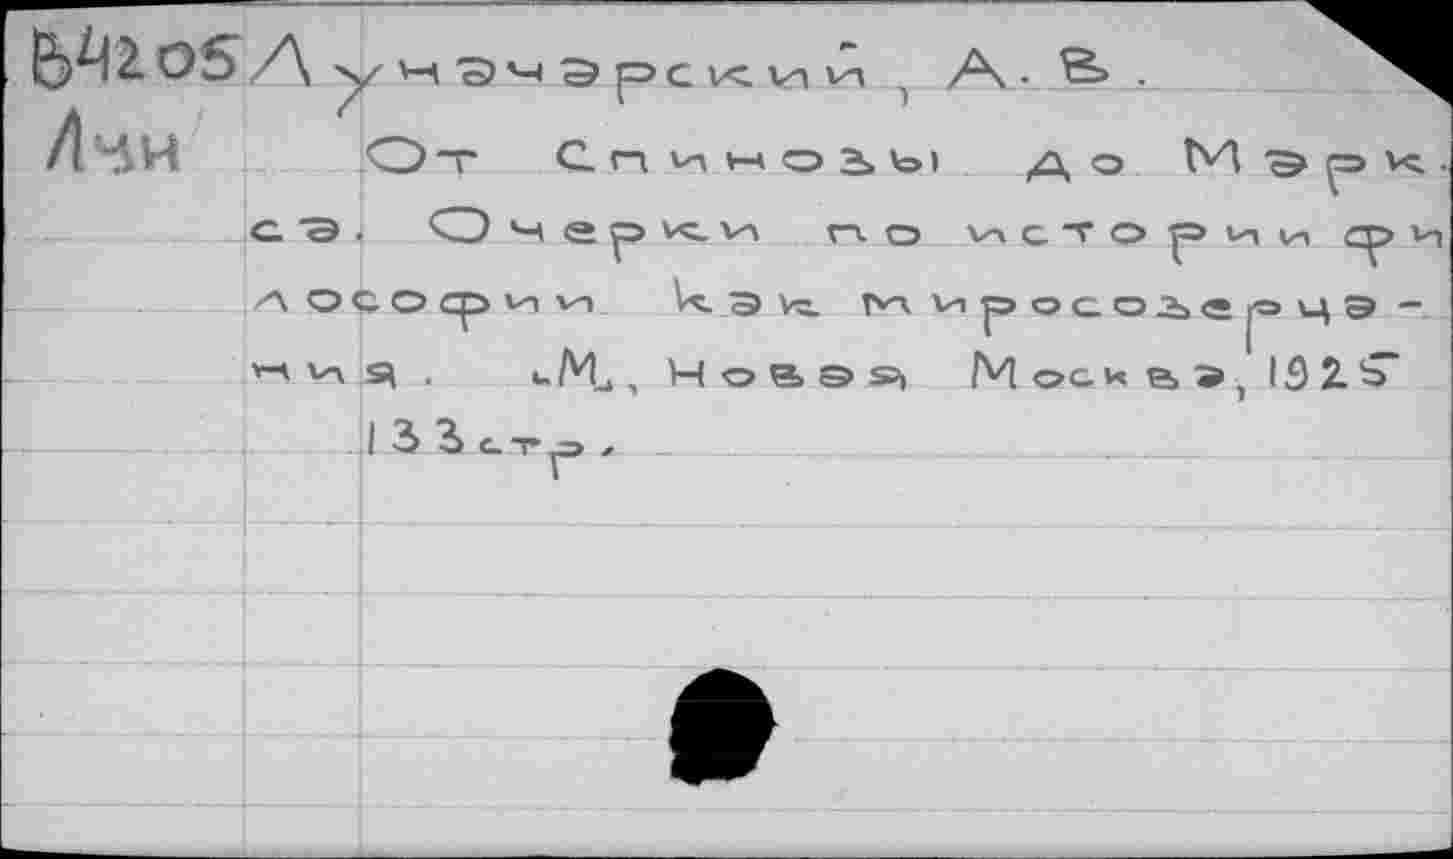 В4205 Луначарский, А. В.
Лчн От Спинозы до Марк-
са. Очерки по истории фи
лософии как миросозерца-
ния. М., Новая Москва, 1925
133стр.